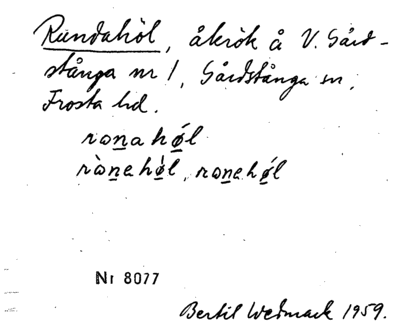 Rundahöl, åkrök å V. Gård-
stånga nr 1, Gårdstånga sn,
Frosta hd.
ronahø̀l
rònehø̀l, ronehǿl
Nr 8077
Bertil Wedmark 1959.